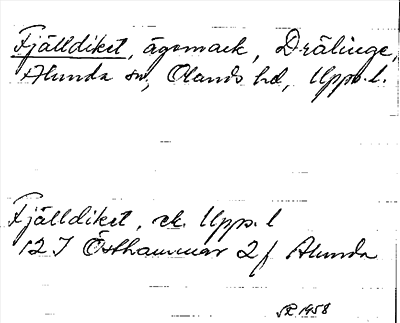 Fjälldiket, ägomark, Drälinge,
Alunda sn, Olands hd, Upps. l.
Fjälldiket, ek. Upps. l
12 I Östhammar 2f Alunda
1958